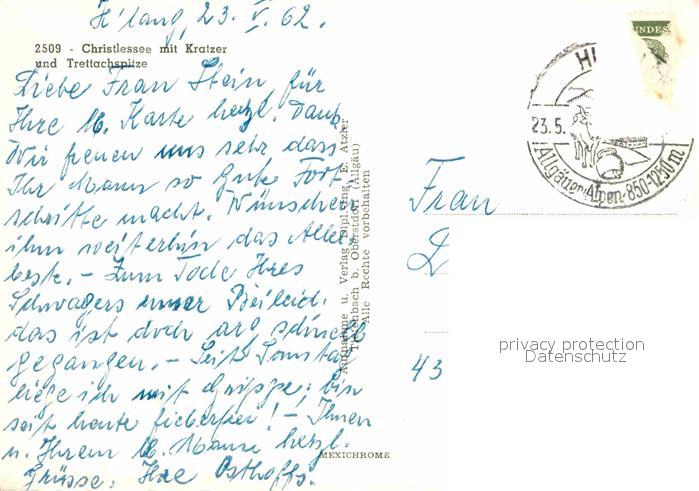 H'lang, 23. V. 62.
2509 - Christlessee mit Kratzer
und Trettachspitze
Liebe Frau Stein, für
Ihre lb. Karte herzl. Dank.
Wir freuen uns sehr dass
Ihr Mann so gute Fort-
schritte macht. Wünschen
ihm weiterhin das Aller-
beste. - Zum Tode Ihres
Schwagers unser Beileid.
das ist doch arg schnell
gegangen. - Seit Sonntag
liege ich mit Grippe; bin
seit heute fieberfrei! - Ihnen
u. Ihrem lb. Manne herzl.
Grüsse, Ihre Osthoffs.
Aufnahme u. Verlag Dipl.-Ing. E. Atzler
b. Oberstdorf (Allgäu)
Alle Rechte vorbehalten
MEXICHROME
INDES
HI
23.5.
Allgäuer Alpen 850-1250m
Frau
43
privacy protection
Datenschutz